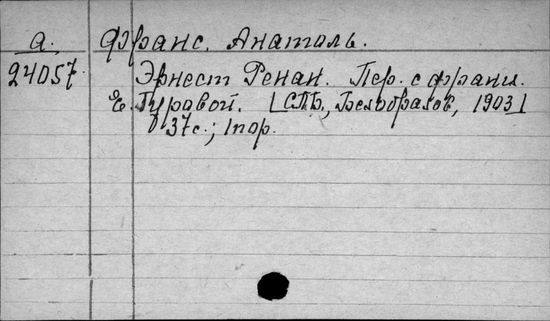 а. Франс, Анатоль.
24057. Эрнест Ренан. Пер. с франц.
Е. Гуровой. [СПб, Белобрагов, 1903]
37с.; 1пор.